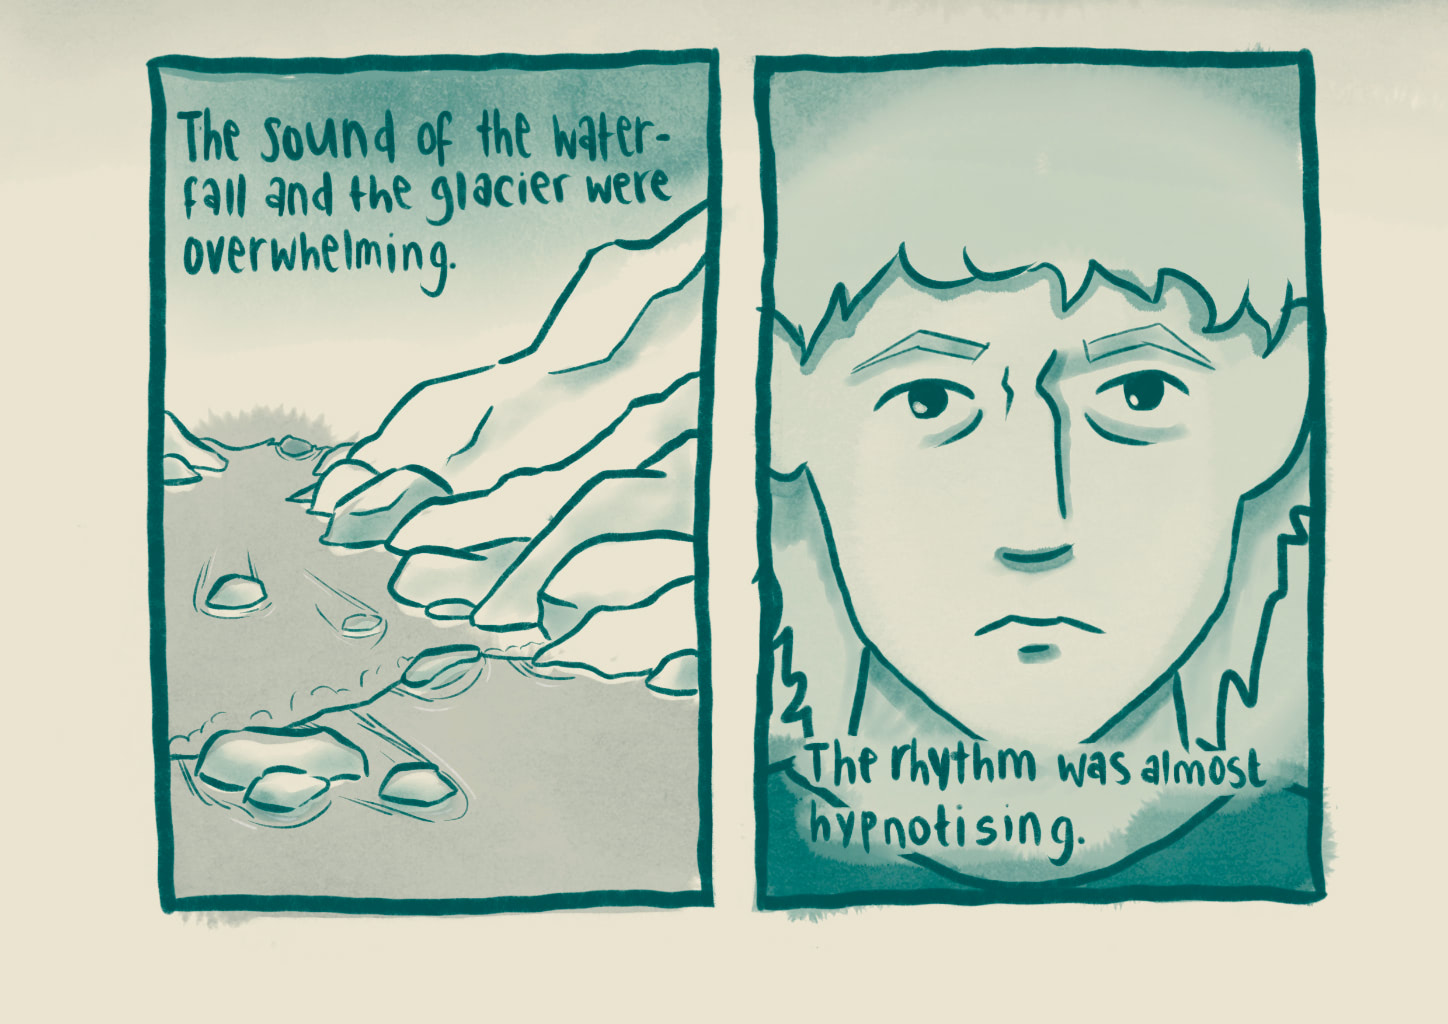 The sound of the water-
fall and the glacier were
overwhelming.
The rhythm was almost
hypnotising.